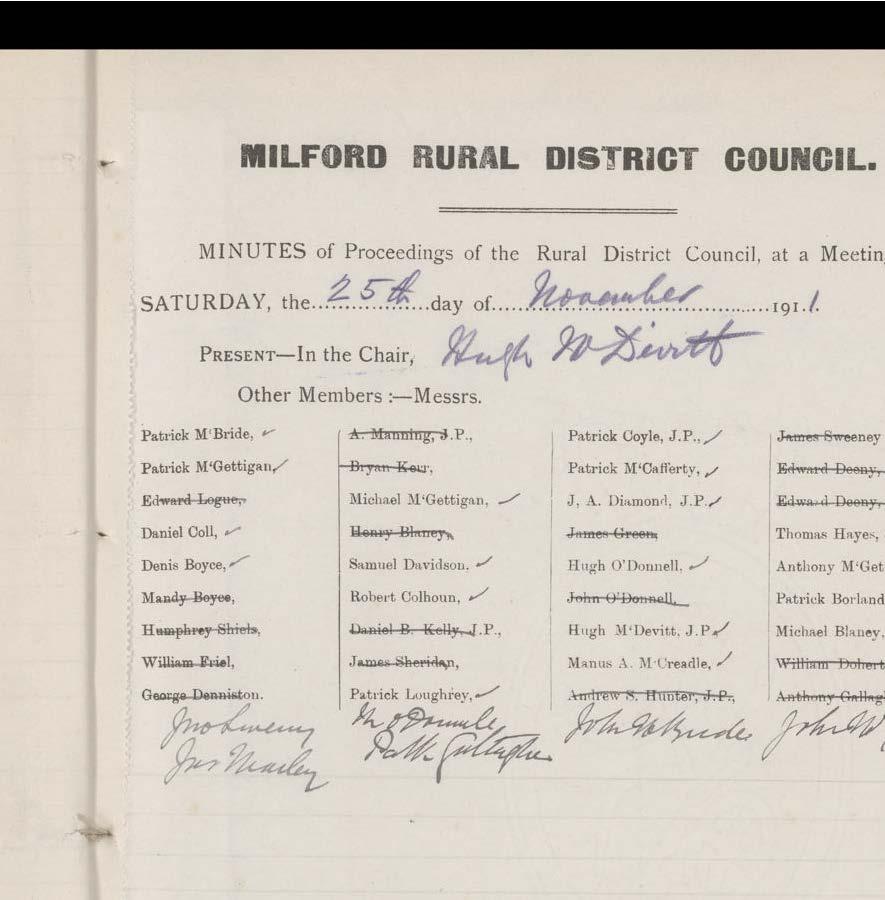 MILFORD RURAL DISTRICT COUNCIL.
MINUTES of Proceedings of the Rural District Council, at a Meetin
SATURDAY, the 25th day of November 1911.
PRESENT—In the Chair, Hugh McDevitt
Other Members :—Messrs.
Patrick M‘Bride, A. Manning, J.P., Patrick Coyle, J.P., James Sweeney
Patrick M‘Gettigan, Bryan Kerr, Patrick M‘Cafferty, Edward Deeny,
Edward Logue, Michael M‘Gettigan, J, A. Diamond, J.P. Edward Deeny,
Daniel Coll, Henry Blaney, James Green, Thomas Hayes,
Denis Boyce, Samuel Davidson, Hugh O’Donnell, Anthony M‘Get
Mandy Boyce, Robert Colhoun, John O’Donnell, Patrick Borland
Humphrey Shiels, Daniel B. Kelly, J.P., Hugh M‘Devitt, J.P. Michael Blaney,
William Friel, James Sheridan, Manus A. M‘Creadle, William Dohert
George Denniston. Patrick Loughrey, Andrew S. Hunter, J.P., Anthony Gallag
Jno Sweeny M O Donnell John McBride John M
Jas Patk Gallagher